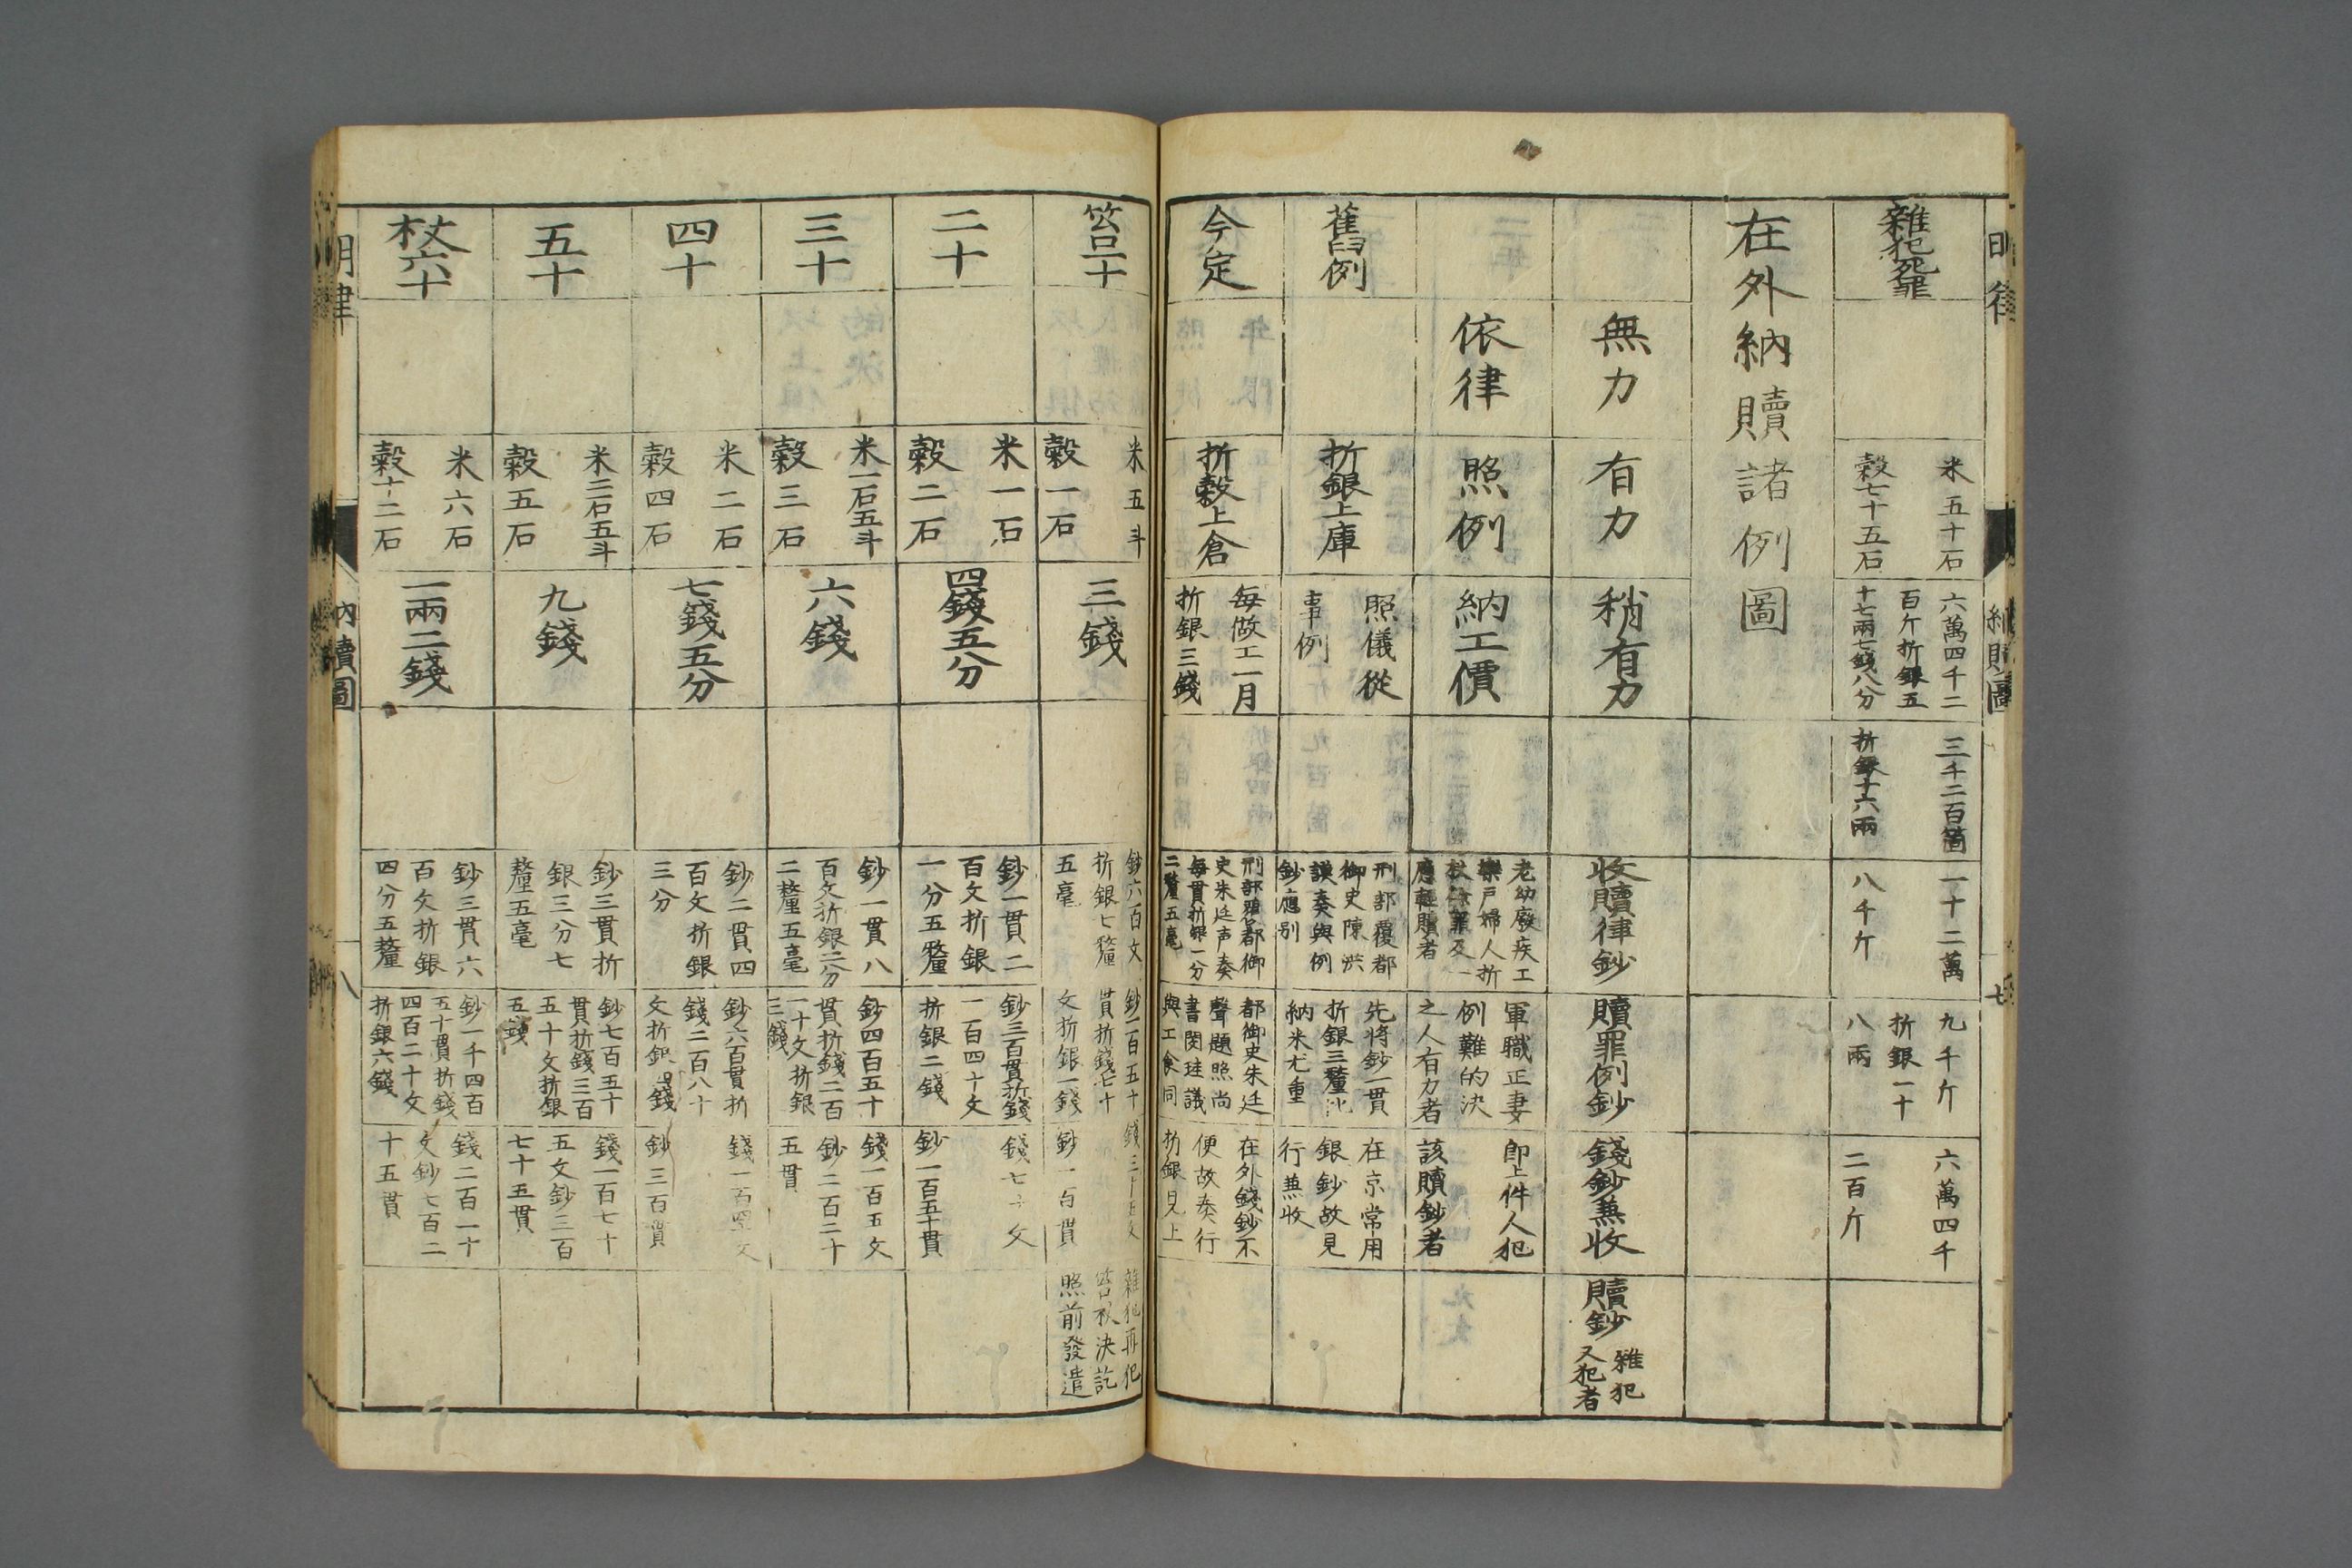 雜犯死罪
米五十石
穀七十五石
六萬四千二
百斤折銀五
十七兩七錢八分
三千二百箇
折銀十六兩
一十二萬
八千斤
九千斤
折銀一十
八兩
六萬四千
二百斤
在外納贖諸例圖
無力
有力
稍有力
收贖律鈔
贖罪例鈔
錢鈔兼收
贖鈔
雜犯
又犯者
依律
照例
納工價
老幼廢疾工
樂戶婦人折
杖餘罪及一
應輕贖者
軍職正妻
例難的決
之人有力者
即上件人犯
該贖鈔者
舊例
折銀上庫
照儀從
事例
刑部覆都
御史陳洪
謨奏與例
鈔應別
先將鈔一貫
折銀三釐比
納米尤重
在京常用
銀鈔故見
行兼收
今定
折穀上倉
每做工一月
折銀三錢
刑部題都御
史朱廷声奏
每貫折銀一分
二釐五毫
都御史朱廷
聲題照尚
書閔珪議
與工食同
在外錢鈔不
便故奏行
折銀見上
笞一十
米五斗
穀一石
三錢
鈔六百文
折銀七釐
五毫
鈔一百五十
貫折錢七十
文折銀一錢
錢三十五文
鈔一百貫
雜犯再犯
笞杖決訖
照前發遣
二十
米一石
穀二石
四錢五分
鈔一貫二
百文折銀
一分五釐
鈔三百貫折錢
一百四十文
折銀二錢
錢七十文
鈔一百五十貫
三十
米一石五斗
穀三石
六錢
鈔一貫八
百文折銀二分
二釐五毫
鈔四百五十
貫折錢二百
一十文折銀
三錢
錢一百五文
鈔二百二十
五貫
四十
米二石
穀四石
七錢五分
鈔二貫四
百文折銀
三分
鈔六百貫折
錢二百八十
文折銀四錢
錢一百四十文
鈔三百貫
五十
米二石五斗
穀五石
九錢
鈔三貫折
銀三分七
釐五毫
鈔七百五十
貫折錢三百
五十文折銀
五錢
錢一百七十
五文鈔三百
七十五貫
杖六十
米六石
穀十二石
一兩二錢
鈔三貫六
百文折銀
四分五釐
鈔一千四百
五十貫折錢
四百二十文
折銀六錢
錢二百一十
文鈔七百二
十五貫
明律
納贖圖
八